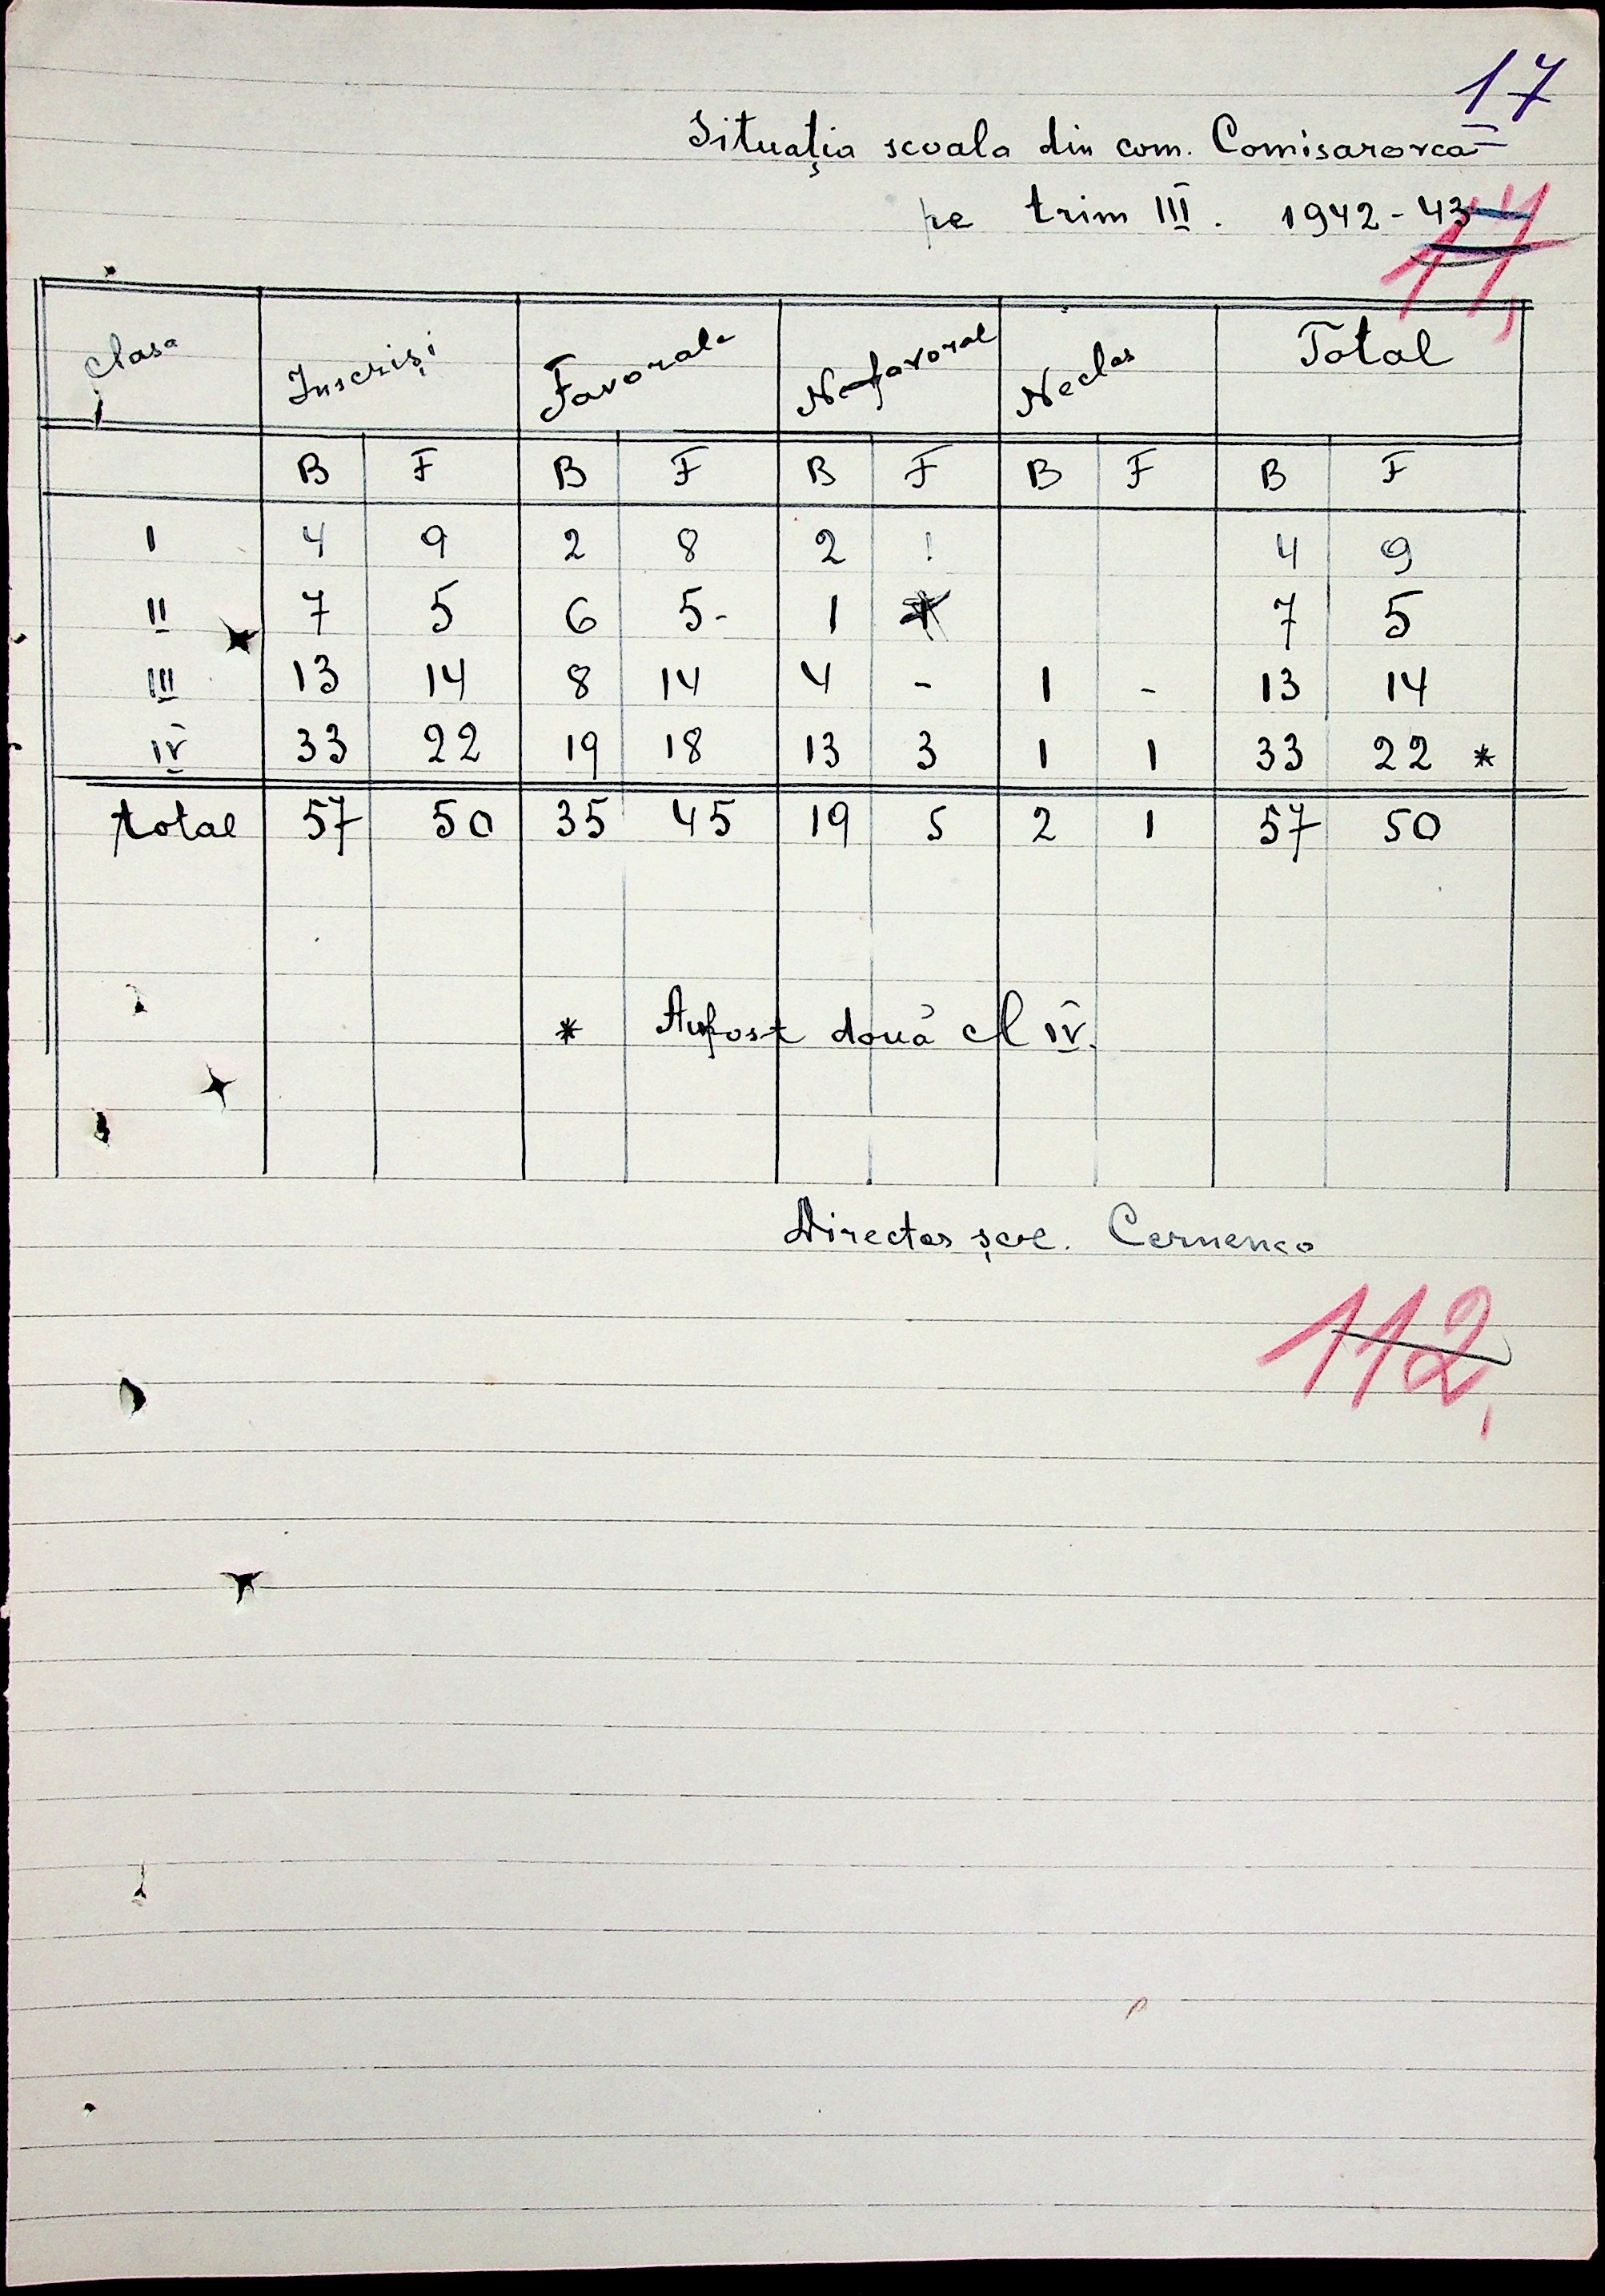 17
Situația scoala din com. Comisarovca
pe trim III. 1942-43
Clasa Inscriși Favorale Nefavoral Neclas Total
B F B F B F B F B F
I 4 9 2 8 2 1 4 9
II 7 5 6 5- 1 7 5
III 13 14 8 14 4 - 1 - 13 14
IV 33 22 19 18 13 3 1 1 33 22 *
total 57 50 35 45 19 5 2 1 57 50
* Au fost două cl IV.
Director școl. Cernenco
112,